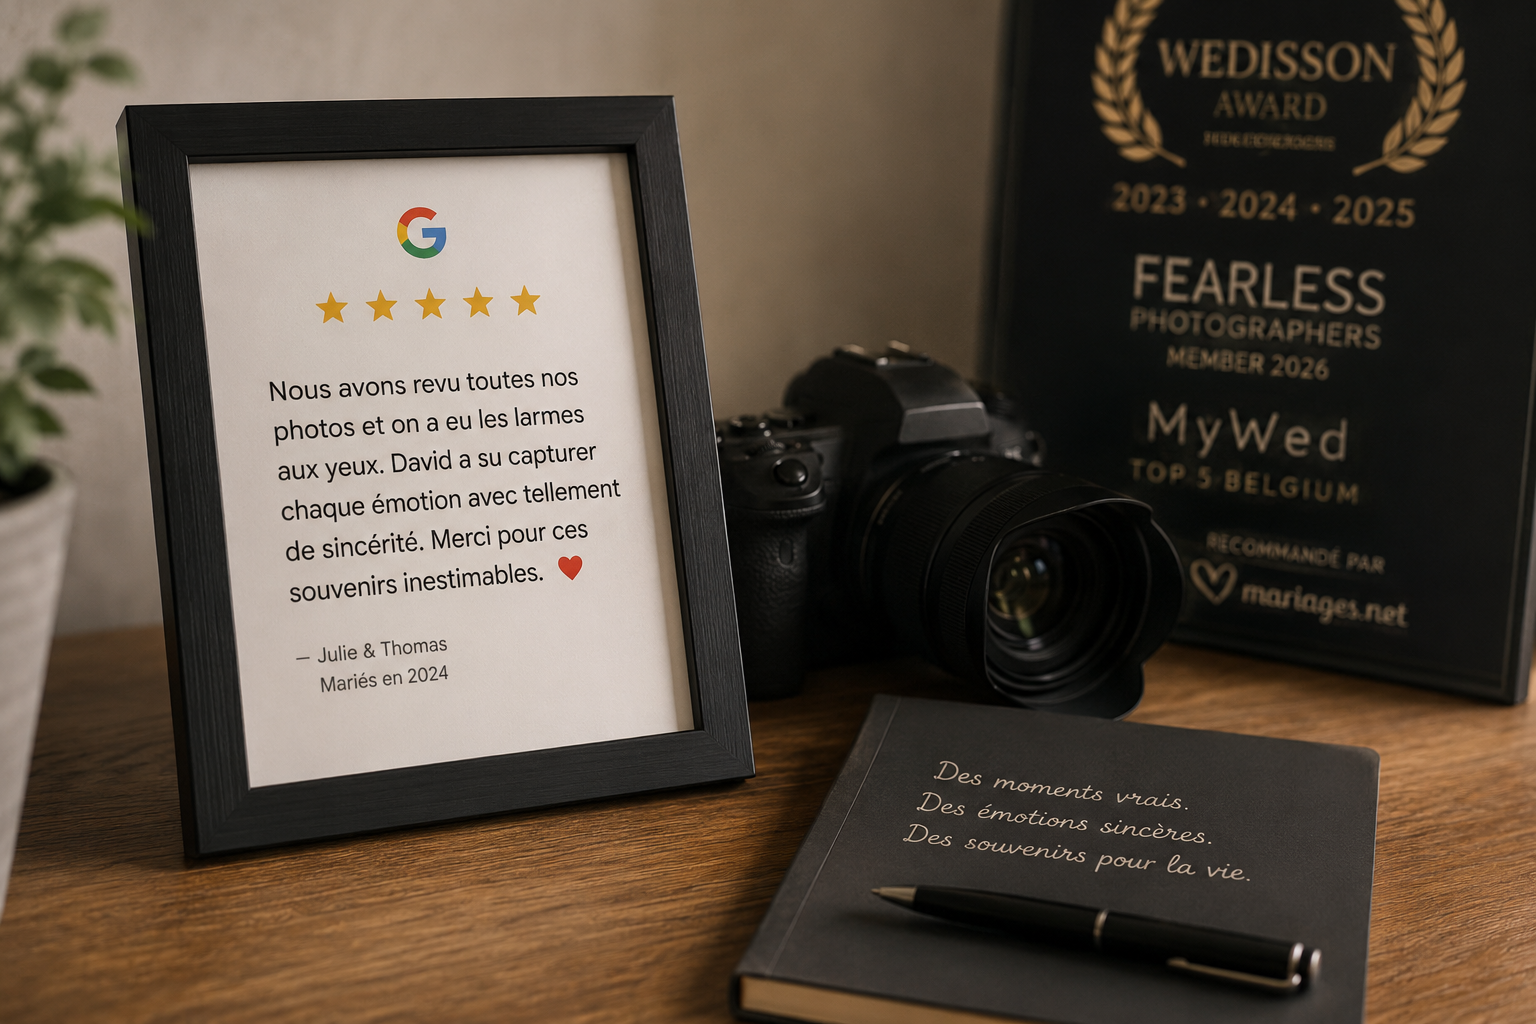 G
Nous avons revu toutes nos
photos et on a eu les larmes
aux yeux. David a su capturer
chaque émotion avec tellement
de sincérité. Merci pour ces
souvenirs inestimables. ❤️
— Julie & Thomas
Mariés en 2024
WEDISSON
AWARD
2023 • 2024 • 2025
FEARLESS
PHOTOGRAPHERS
MEMBER 2026
MyWed
TOP 5 BELGIUM
RECOMMANDÉ PAR
mariages.net
Des moments vrais.
Des émotions sincères.
Des souvenirs pour la vie.